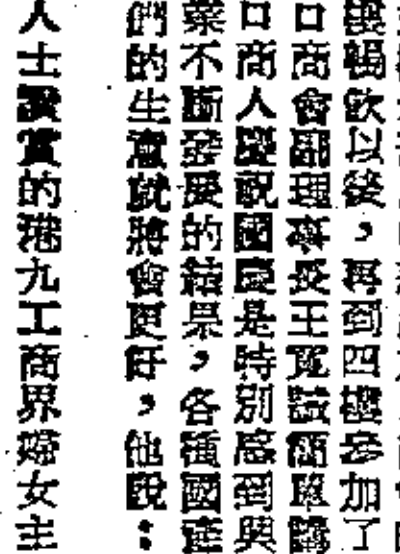 暢飲以後，再到四樓參加了
口商會副理事長王寬誠簡單講
口商人慶祝國慶是特別感到興
業不斷發展的結果，各種國產
們的生意就將會更好，他說：
人士讚賞的港九工商界婦女主